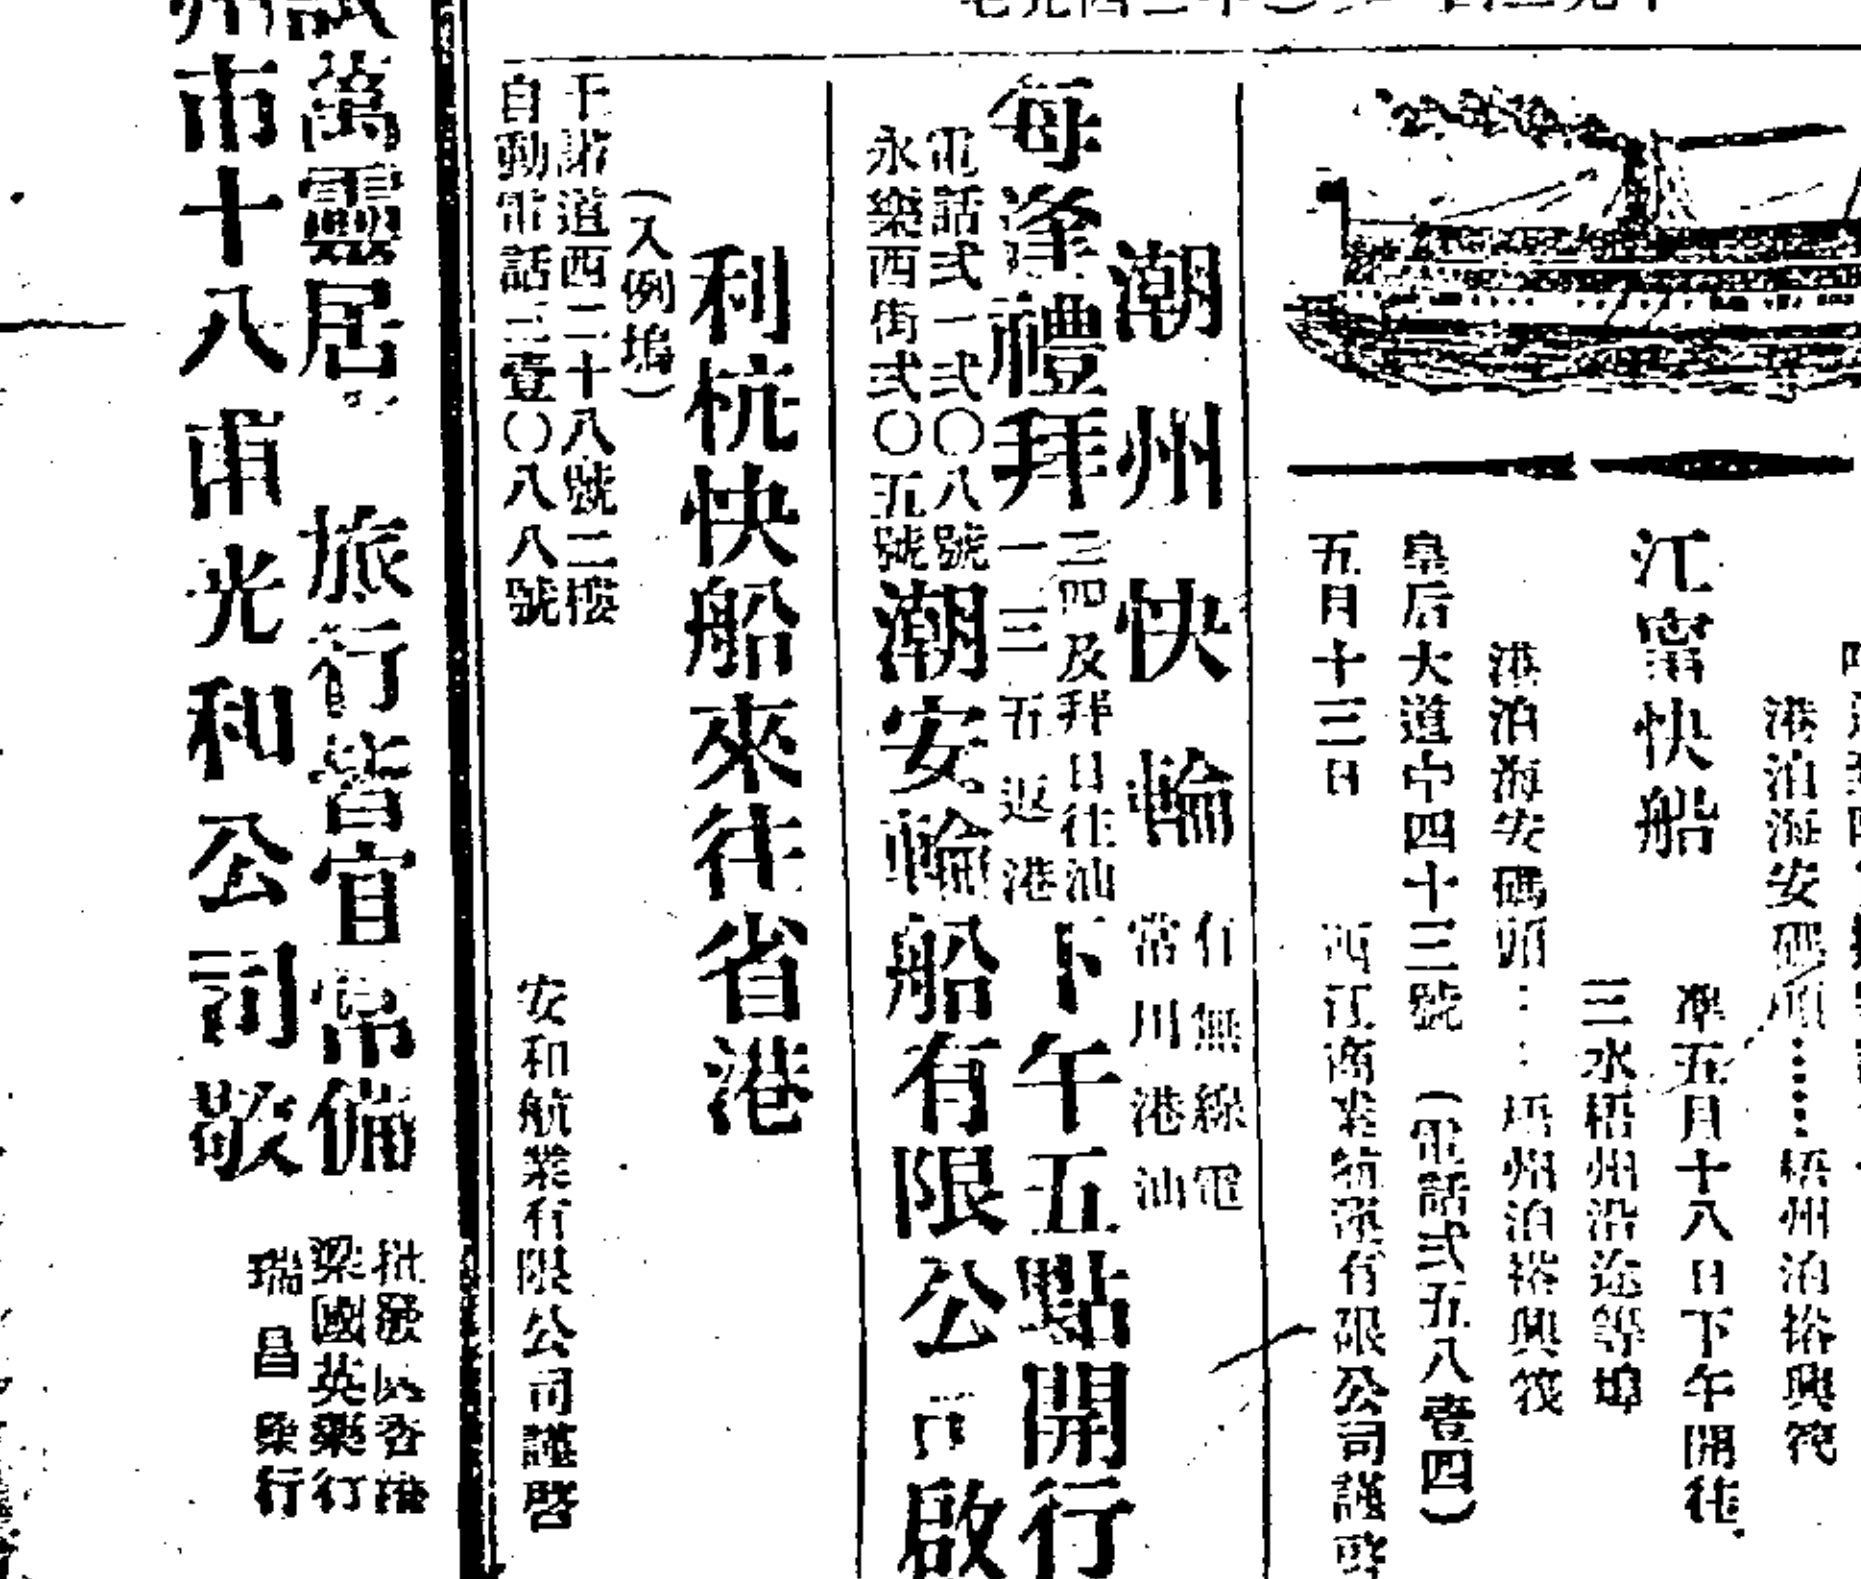 港泊海安碼頭……梧州泊搭興筏
準五月十八日下午開往
江甯快船
三水梧州沿途等埠
港泊海安碼頭……梧州泊搭興筏
皇后大道中四十三號 (電話弍五八壹四)
五月十三日 西江商業航業有限公司謹啓
潮州快輪
有無線電
常川港汕
每逢禮拜
二四及拜日往汕
一三五返港
下午五點開行
電話弍一弍〇八號
永樂西街弍〇五號
潮安輪船有限公司啟
利杭快船來往省港
(入例塢)
干諾道西二十八號二樓
自動電話三壹〇八八號
安和航業有限公司謹啓
試萬靈居。旅行皆宜常備
州市十八甫光和公司敬
批發處香港
梁國英藥行
瑞昌藥行